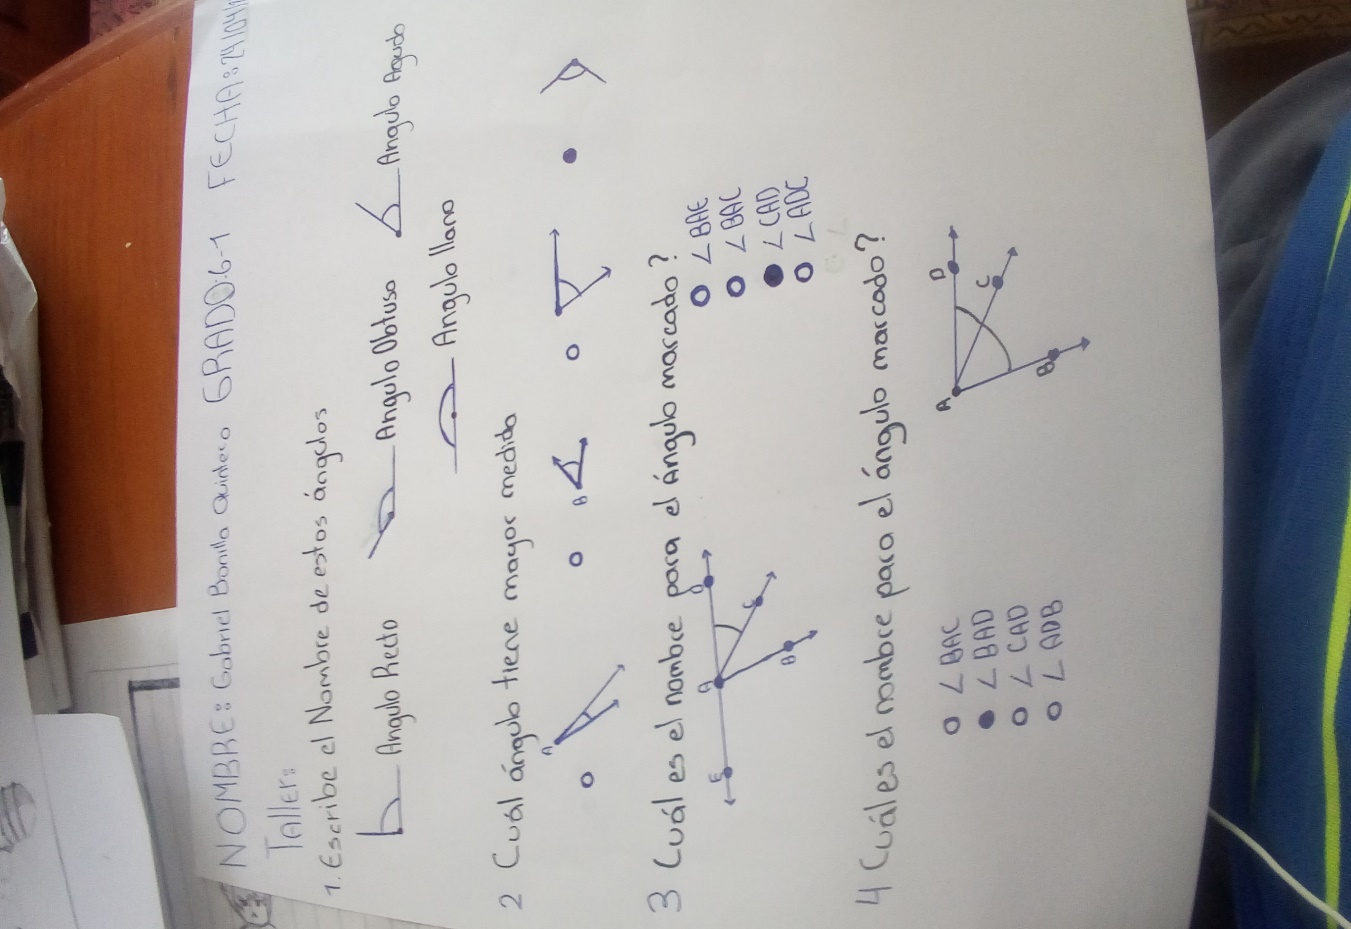 NOMBRE: Gabriel Bonilla Quintero GRADO:6-1 FECHA:24/04/
Taller:
1. Escribe el Nombre de estos ángulos
Angulo Recto Angulo Obtuso Angulo Agudo
Angulo llano
2 Cuál ángulo tiene mayor medida
A
B
3 Cuál es el nombre para el Ángulo marcado?
E A D
C
B
∠ BAE
∠ BAC
∠ CAD
∠ ADC
4 Cuáles el nombre para el ángulo marcado?
∠ BAC
∠ BAD
∠ CAD
∠ ADB
A D
C
B